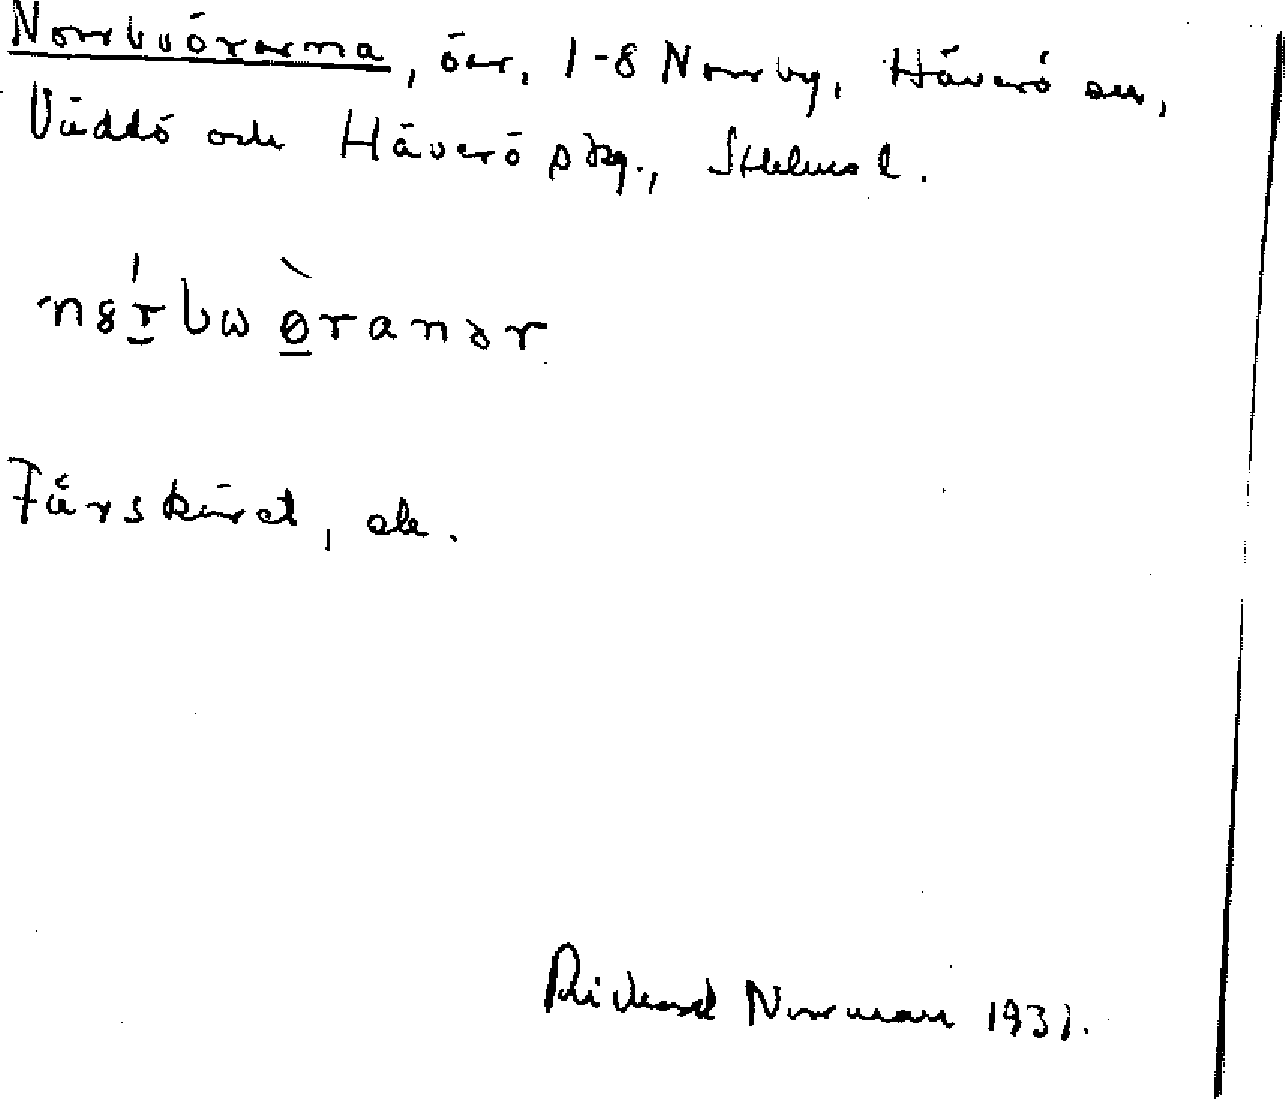 Norrboörarna, öar, 1-8 Norrby, Häverö sn,
Väddö och Häverö skg., Sthlms l.
Fårskäret, ek.
Rickard Norman 1931.